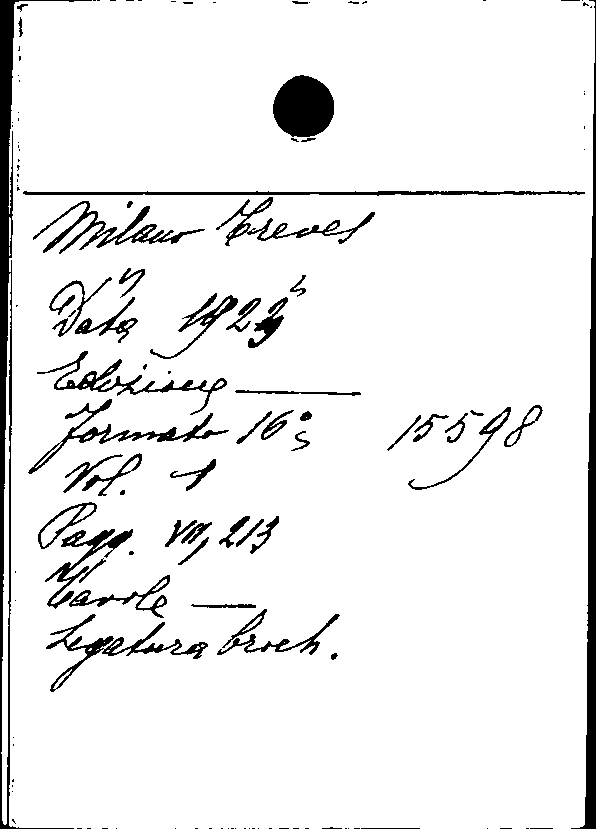 Milano Treves
Data
Edizione —
Formato 16° 15598
Vol. 1
Pagg. VII, 213
Tavole —
Legatura broch.